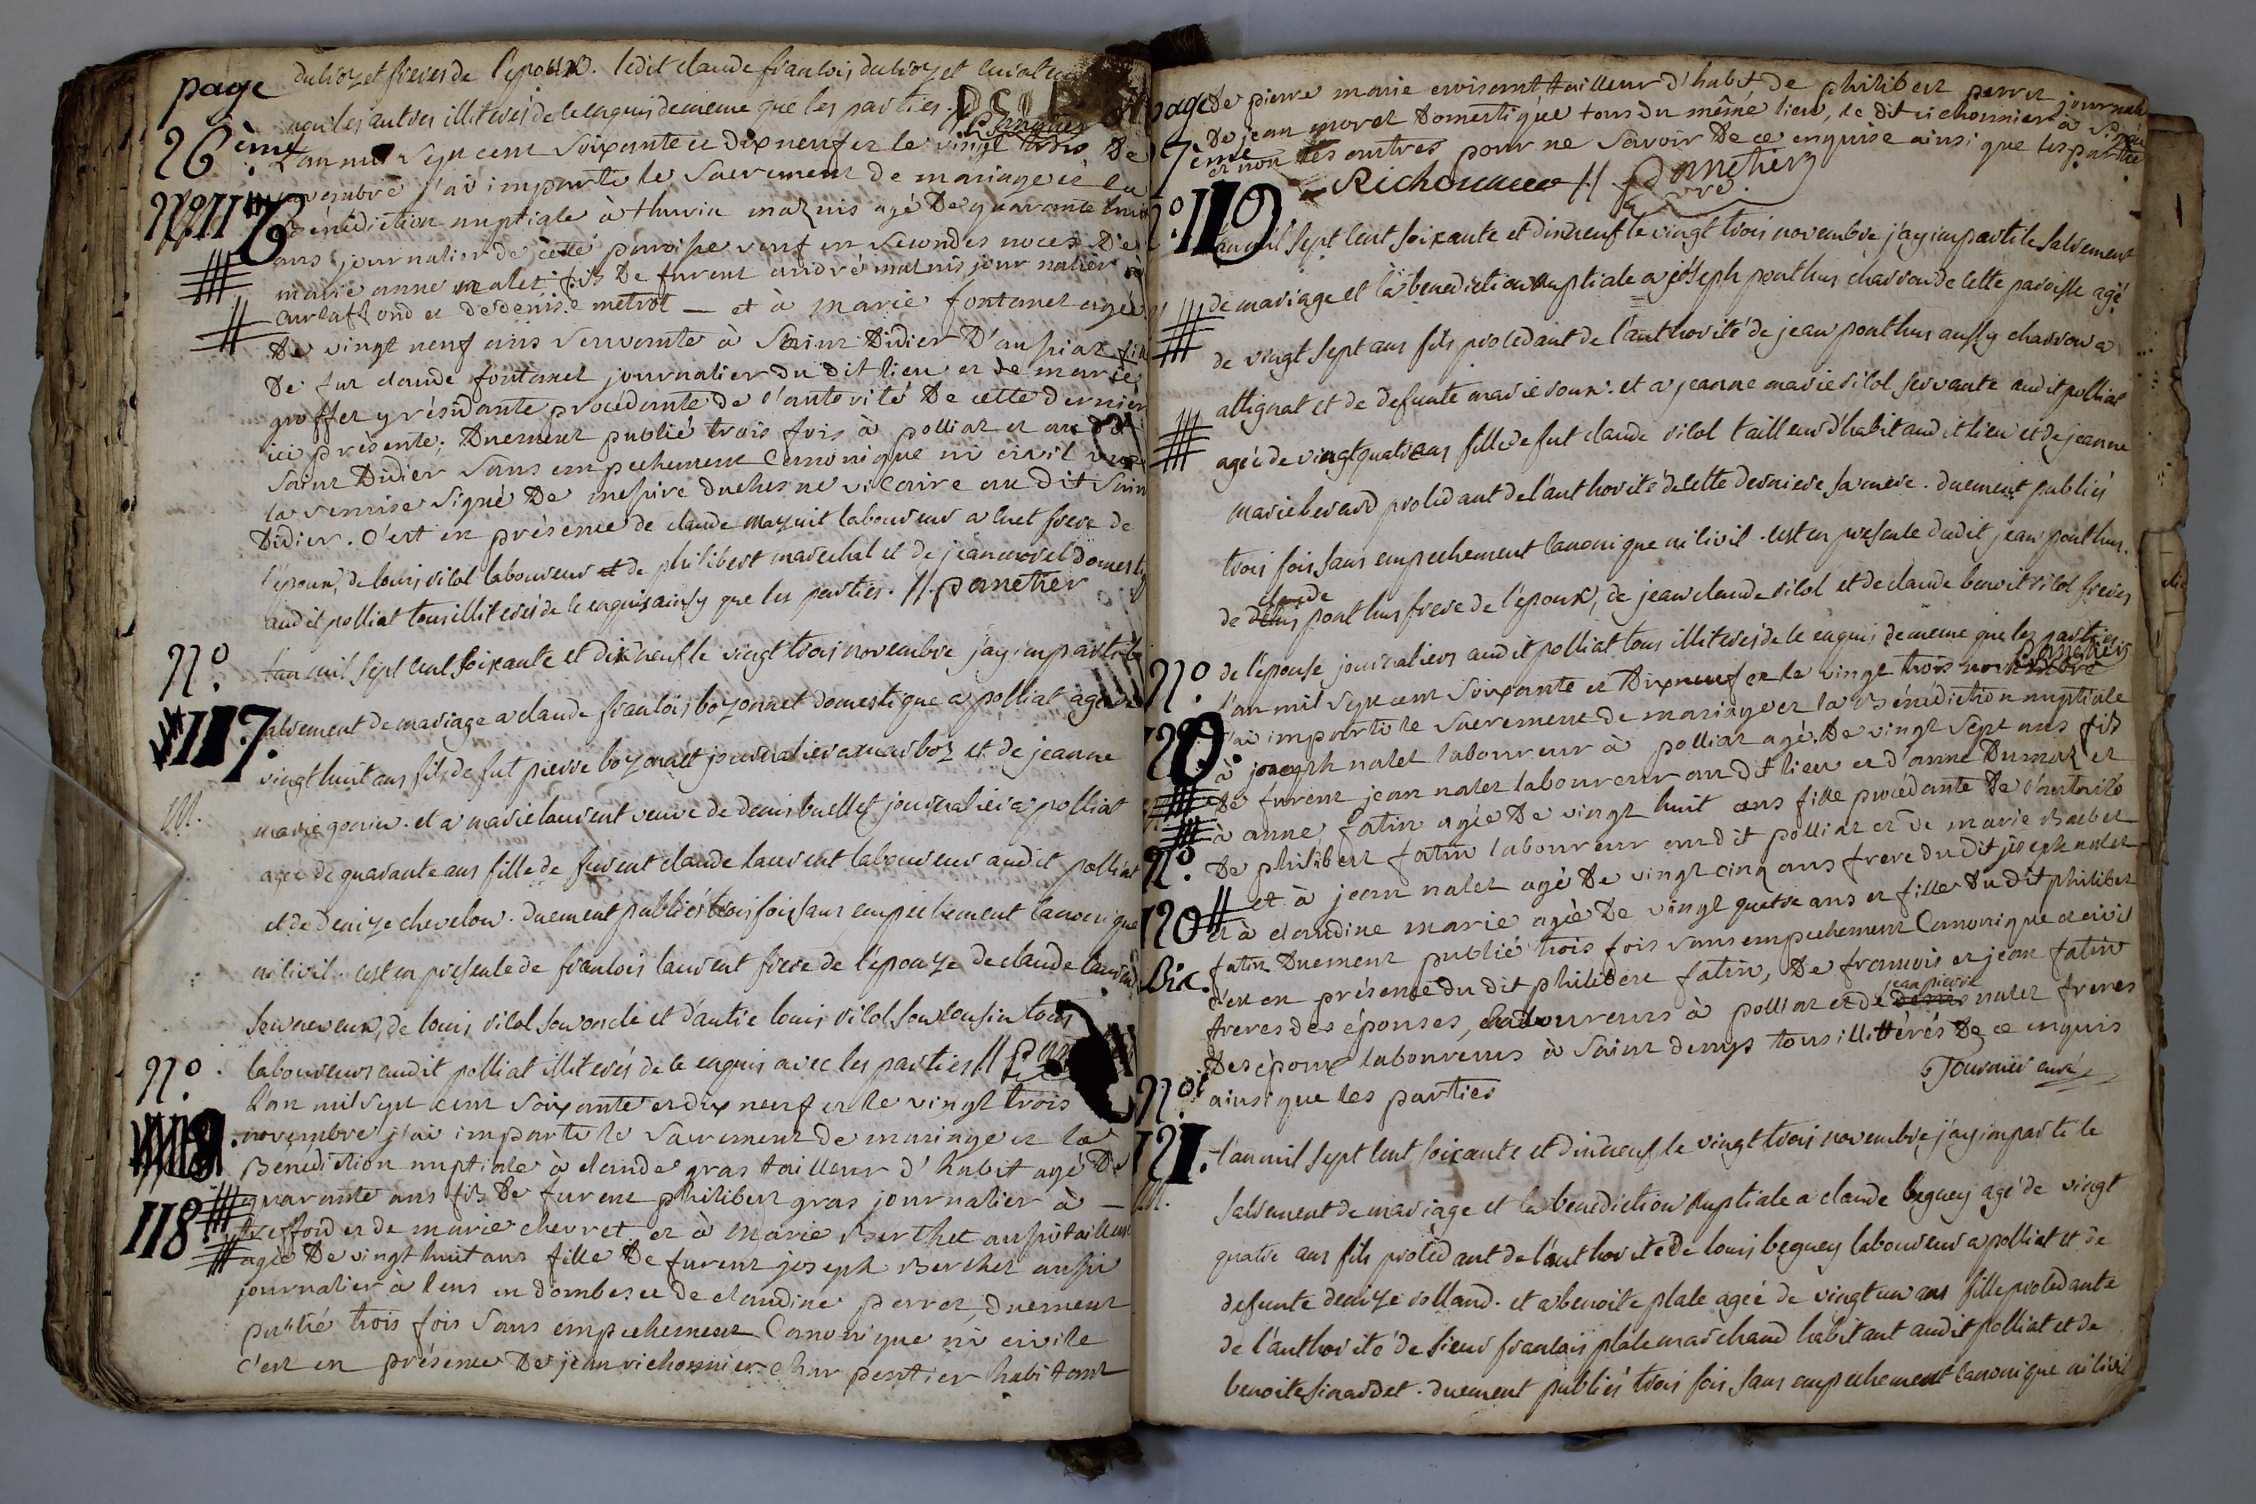 page
26ème
dubiozet freres de l'epoux. ledit claude francois dubiozet
les autres illiteres de ce enquis de meme que les parties.
L'an mil sept cent soixante et dix neuf et le vingt trois De
novembre j'ai imparti le Sacrement de mariage et la
N° 116
Bénédiction nuptiale à thuvin maznis agé De quarante huit
ans journalier de cette paroisse veuf en secondes noces De
marie anne malet fils De furent andré maznis journalier à
curtaffond et de denise metrot — et à marie fontanet agée
De vingt neuf ans servante à Saint Didier D'aussiat fille
De fut claude fontanet journalier Du dit lieu et De marie
groffer y résidante procédante De l'autorité De cette Derniere
ici présente; Duement publié trois fois à polliat et au dit
Saint Didier sans empechement Canonique ni civil vu
la remise signé De messire Duchesne vicaire au Dit Saint
Didier. C'est en présence de claude maznit laboureur a luet frere de
l'epoux, de louis vilol laboureur et de philibert marechal et de jean morel domestiq
audit polliat tous illiteres de ce enquis ainsy que les parties. // ponethier
N°
117.
L'an mil sept cent soixante et dix neuf le vingt trois novembre j'ay imparti le
sacrement de mariage a claude francois bozonnet domestique a polliat agé de
vingt huit ans fils de fut pierre bozonnet journalier a marboz et de jeanne
marie gonin. et a marie laurent veuve de denis buellet journalier a polliat
agée de quarante ans fille de furent claude laurent laboureur audit polliat
et de denize chevelon. duement publiés trois fois sans empechement canonique
ni civil. c'est en presence de francois laurent frere de l'epouze de claude laurent
son neveux, de louis vilol son oncle et d'autre louis vilol son cousin tous
laboureurs audit polliat illiteres de ce enquis avec les parties //
N°
118
L'an mil sept cent soixante et dix neuf et le vingt trois
novembre j'ai imparti le sacrement de mariage et la
Bénédiction nuptiale à claude gras tailleur d'habit agé De
quarante ans fils De furent philibert gras journalier à —
treffond et de marie chevret et à marie Berthet aussi tailleuse
agée De vingt huit ans fille De furent joseph Berthet aussi
journalier à lens en dombes et De claudine perret, Duement
publié trois fois sans empechement Canonique ni civile
C'est en présence De jean richonnier charpentier habitant
page
7ème
De pierre marie crvisent tailleur d'habit de philibert perret journali
De jean morel Domestique tous du même lieu, le dit richonnier à signé
et non les autres pour ne savoir De ce enquise ainsi que les parties
Richonnier // ponethier
N°
119
L'an mil sept cent soixante et dixneuf le vingt trois novembre j'ay imparti le sacrement
de mariage et la benediction nuptiale a joseph ponthus charron de cette paroisse agé
de vingt sept ans fils procedant de l'authorité de jean ponthus aussy charron a
attignat et de defunte marie roux. et a jeanne marie vilol servante audit polliat
agée de vingt quatre ans fille de fut claude vilol tailleur d'habit audit lieu et de jeanne
marie berard procedant de l'authorité de cette derniere sa mere. duement publiés
trois fois sans empechement canonique ni civil. c'est en presence dudit jean ponthus.
claude
de denis ponthus frere de l'epoux, de jean claude vilol et de claude benoit vilol freres
de l'epouse journaliers audit polliat tous illiteres de ce enquis de meme que les parties
ponethier
N°
120.
L'an mil sept cent soixante et Dixneuf et le vingt trois novembre
j'ai imparti le sacrement de mariage et la Bénédiction nuptiale
à joseph nalet laboureur à polliat agé De vingt sept ans fils
De furent jean nalet laboureur au dit lieu et d'anne Dumaz et
à anne fatin agée De vingt huit ans fille procédante De l'autorité
N°
De philibert fatin laboureur au dit polliat et De marie Barbet
120
Bis.
et à jean nalet agé De vingt cinq ans frere du dit joseph nalet
et à claudine marie agée De vingt quatre ans et fille Du Dit philibert
fatin Duement publié trois fois sans empechement Canonique et civil
c'est en présence Du dit philibert fatin, De francois et jean fatin
jean pierre
freres des épouses, laboureurs à polliat et De denis nalet freres
Des époux laboureurs à Saint denys tous illittérés De ce enquis
ainsi que les parties
Tournier curé
N°
121.
L'an mil sept cent soixante et dixneuf le vingt trois novembre j'ay imparti le
sacrement de mariage et la benediction nuptiale a claude beguey agé de vingt
quatre ans fils procedant de l'authorité De louis beguey laboureur a polliat et de
defunte denize rolland. et a benoite plate agée de vingt un ans fille procedante
de l'authorité de sieur francois plate marchand habitant audit polliat et de
benoite sirardet. duement publiés trois fois sans empechement canonique ni civil